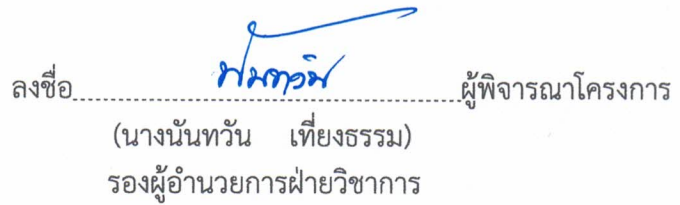 ลงชื่อ นันทวัน ผู้พิจารณาโครงการ
(นางนันทวัน เที่ยงธรรม)
รองผู้อำนวยการฝ่ายวิชาการ